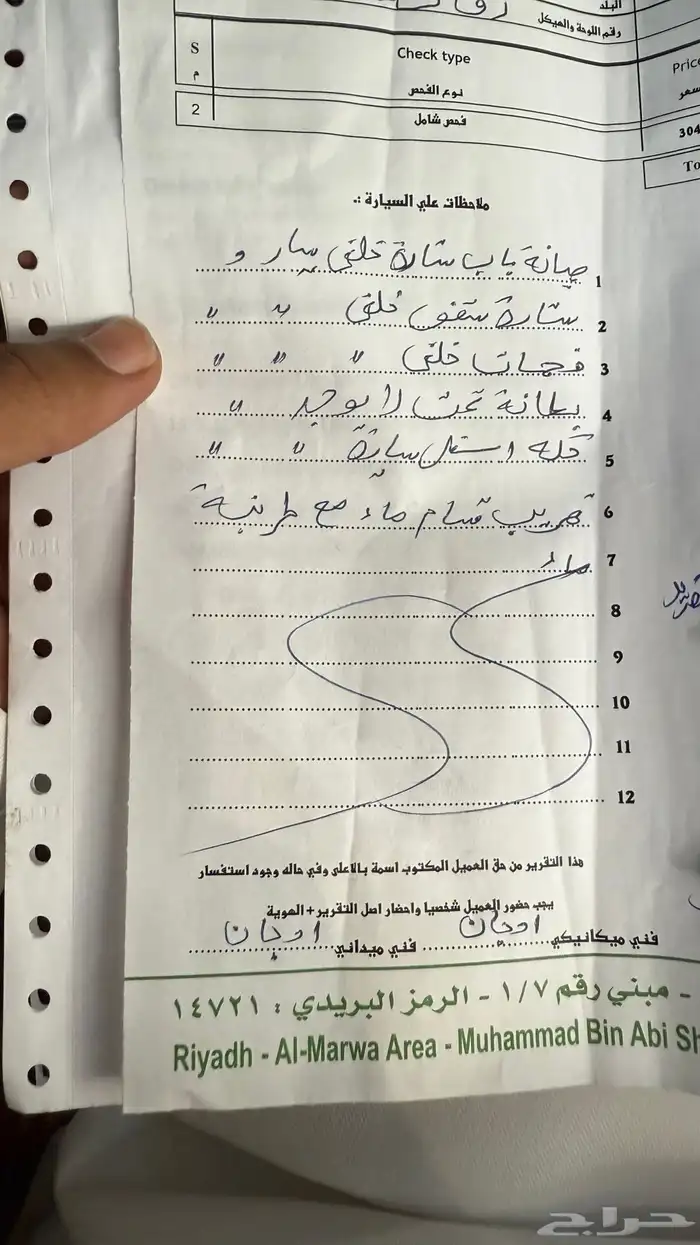 البلد
رقم اللوحة والهيكل
S
م
Check type
نوع الفحص
Price
سعر
2
فحص شامل
304
To
ملاحظات علي السيارة :.
1 صيانة باب ستارة خلفي يسار و
2 ستارة سقف خلفي " "
3 خلفي " " "
4 بطانة تحت لا يوجد "
5 " "
6 تهريب قسام ماء مع طرنبة
7 ماء
8
9
10
11
12
هذا التقرير من حق العميل المكتوب اسمة بالاعلى وفي حاله وجود استفسار
يجب حضور العميل شخصيا واحضار اصل التقرير + الهوية
فني ميكانيكي فني ميداني
- مبني رقم ١/٧ - الرمز البريدي : ١٤٧٢١
Riyadh - Al-Marwa Area - Muhammad Bin Abi Sh
حراج